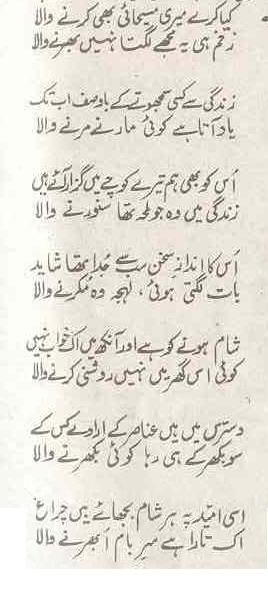 کیا کرے میری مسیحائی بھی کرنے والا
زخم ہی یہ مجھے لگتا نہیں بھرنے والا
زندگی سے کسی سمجھوتے کے باوصف اب تک
یاد آتا ہے کوئی مارنے مرنے والا
اُس کو بھی ہم تیرے کوچے میں گزار آئے ہیں
زندگی میں وہ جو لمحہ تھا سنورنے والا
اُس کا اندازِ سخن سب سے جُدا تھا شاید
بات لگتی ہوئی، لہجہ وہ مُکرنے والا
شام ہونے کو ہے اور آنکھ میں اک خواب نہیں
کوئی اس گھر میں نہیں روشنی کرنے والا
دسترس میں ہیں عناصر کے ارادے کس کے
سو بکھر کے ہی رہا کوئی بکھرنے والا
اسی امید پہ ہر شام بجھائے ہیں چراغ
اک تارا ہے سرِ بام اُبھرنے والا